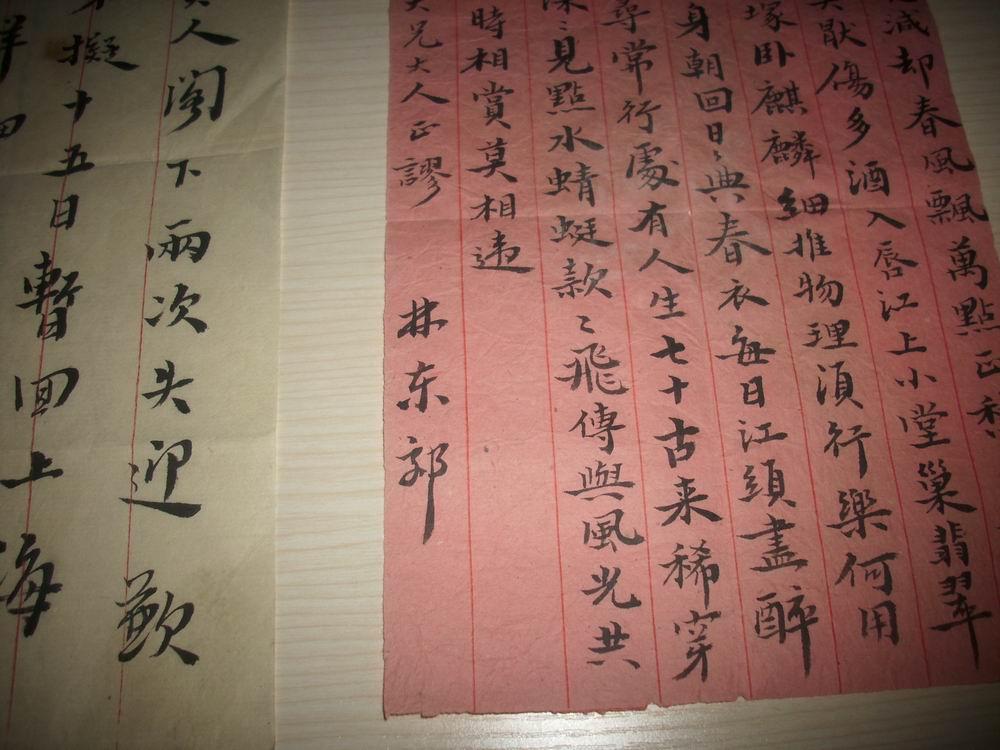 減却春風飄萬點正愁
莫厭傷多酒入唇江上小堂巢翡翠
塚卧麒麟細推物理須行樂何用
身朝回日〻典春衣每日江頭盡醉
尋常行處有人生七十古来稀穿
深〻見點水蜻蜓款〻飛傳與風光共
時相賞莫相違
大兄大人正謬 林东郭
人閣下兩次失迎歉
擬十五日暫回上海